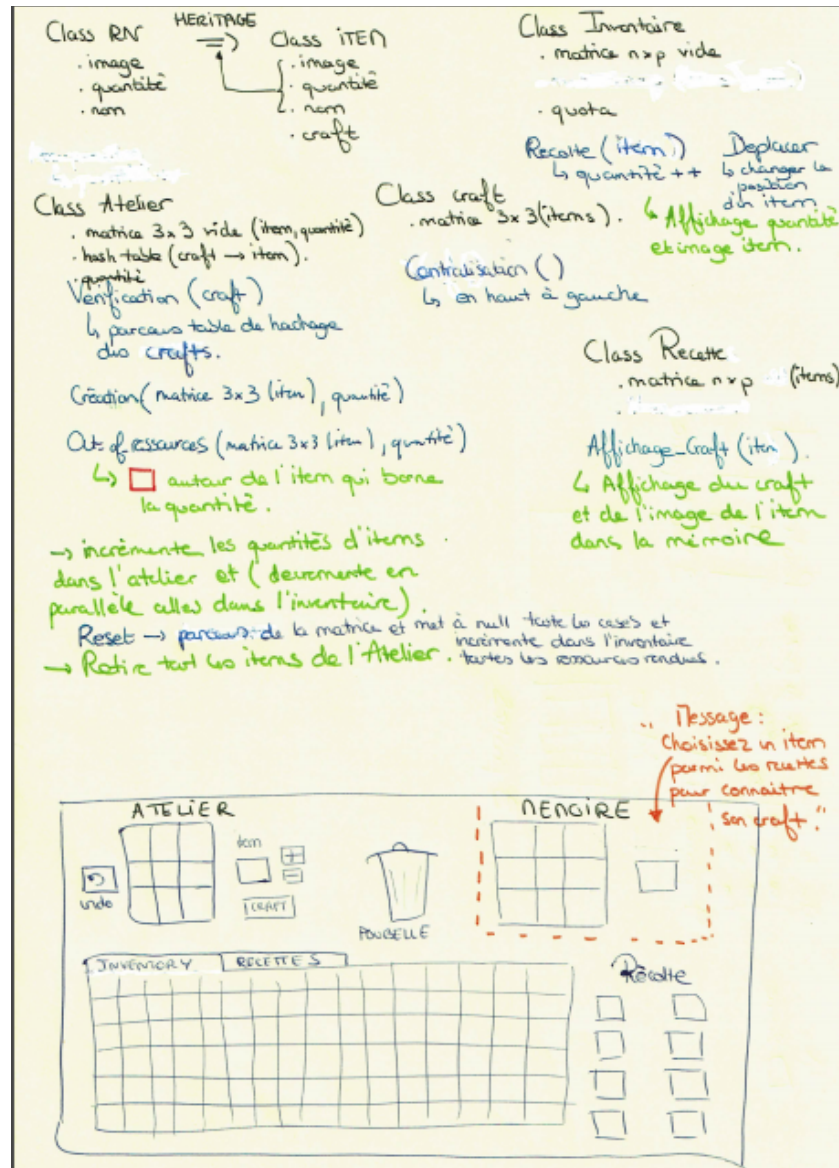 Class RN
HERITAGE
Class ITEM
. image
. quantité
. nom
. image
. quantité
. nom
. craft
Class Inventaire
. matrice n×p vide
. quota
Recolte (item)
↳ quantité ++
Deplacer
↳ changer la
position
d'un item
↳ Affichage quantité
et image item.
Class Atelier
. matrice 3×3 vide (item, quantité)
. hash table (craft → item).
. quantité
Vérification (craft)
↳ parcours table de hachage
des crafts.
Création (matrice 3×3 (item), quantité)
Out of ressources (matrice 3×3 (item), quantité)
↳ □ autour de l'item qui borne
la quantité.
→ incrémente les quantités d'items
dans l'atelier et (décrémente en
parallèle celles dans l'inventaire).
Reset → parcours de la matrice et met à null toute les cases et
incrémente dans l'inventaire
toutes les ressources rendues.
→ Retire tout les items de l'Atelier.
Class craft
. matrice 3×3 (items).
Centralisation ()
↳ en haut à gauche
Class Recette
. matrice n×p (items)
Affichage_Craft (item).
↳ Affichage du craft
et de l'image de l'item
dans la mémoire
" Message :
Choisissez un item
parmi les recettes
pour connaitre
son craft. "
ATELIER
MEMOIRE
item
+
-
undo
CRAFT
POUBELLE
INVENTORY
RECETTES
Récolte